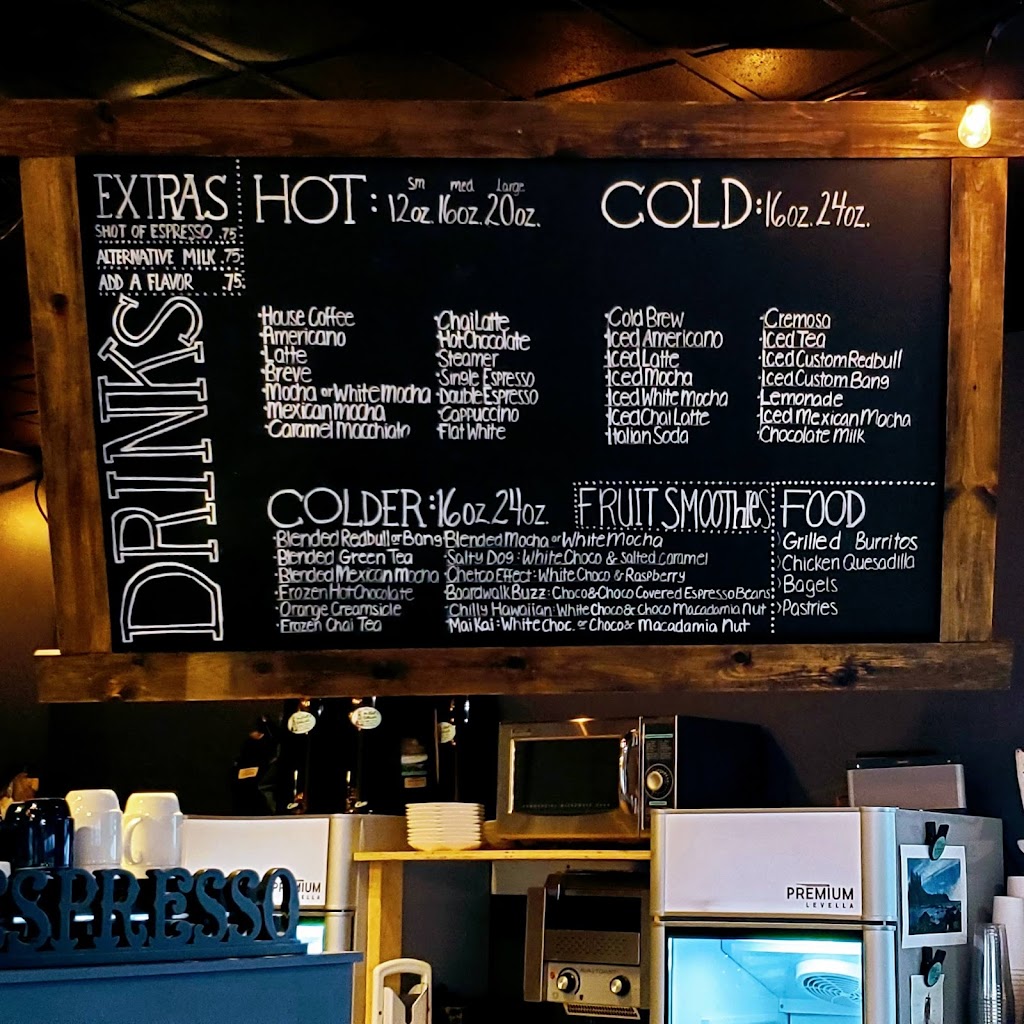 EXTRAS
SHOT OF ESPRESSO .75
ALTERNATIVE MILK .75
ADD A FLAVOR .75
DRINKS
HOT: 12oz. 16oz. 20oz.
Sm med Large
·House Coffee
·Americano
·Latte
·Breve
·Mocha or White Mocha
·Mexican mocha
·Caramel Macchiato
·Chai Latte
·Hot Chocolate
·Steamer
·Single Espresso
·Double Espresso
·Cappuccino
·Flat White
COLD: 16oz. 24oz.
·Cold Brew
·Iced Americano
·Iced Latte
·Iced Mocha
·Iced White Mocha
·Iced Chai Latte
·Italian Soda
·Cremosa
·Iced Tea
·Iced Custom Redbull
·Iced Custom Bang
·Lemonade
·Iced Mexican Mocha
·Chocolate Milk
COLDER: 16oz. 24oz.
·Blended Redbull or Bang
·Blended Green Tea
·Blended Mexican Mocha
·Frozen Hot Chocolate
·Orange Creamsicle
·Frozen Chai Tea
·Blended Mocha or White Mocha
·Salty Dog: White Choco & Salted Caramel
·Chetco Effect: White Choco & Raspberry
·Boardwalk Buzz: Choco & Choco Covered Espresso Beans
·Chilly Hawaiian: White Choco & choco Macadamia nut
·Mai Kai: White Choc. or Choco & Macadamia Nut
FRUIT SMOOTHIES
FOOD
Grilled Burritos
Chicken Quesadilla
Bagels
Pastries
ESPRESSO
PREMIUM
LEVELLA
PREMIUM
LEVELLA